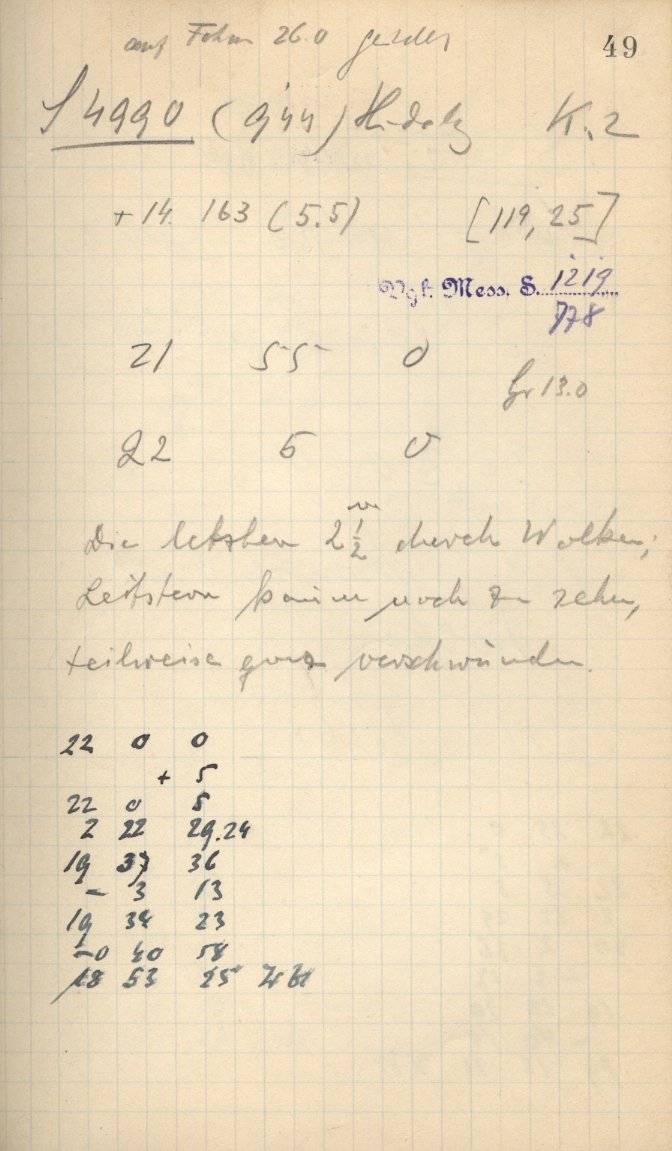 auf Fohm 26.0
49
S 4990 (9'44) Hidalg K. 2
+14. 163 (5.5) [119, 25]
Vgl. Mess. S. 1219
778
21 55 0
Gr 13.0
22 5 0
Die letzten 2 1/2 m durch Wolken;
Leitstern kaum noch zu sehn,
teilweise ganz verschwunden.
22 0 0
+ 5
22 0 5
2 22 29.24
19 37 36
- 3 13
19 34 23
-0 40 58
18 53 25